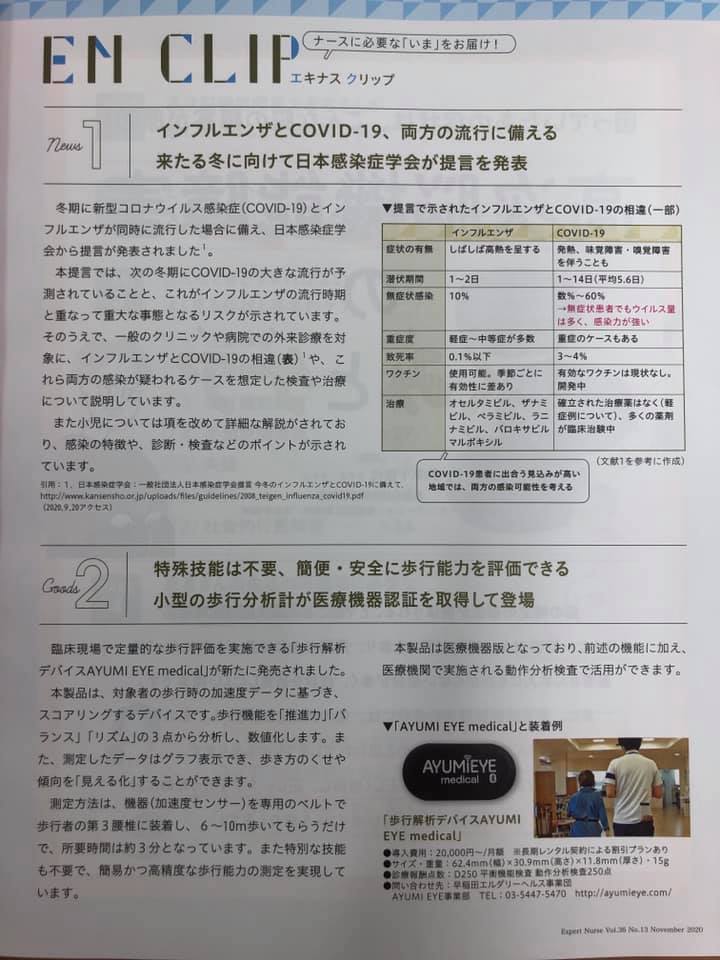 EN CLIP
ナースに必要な「いま」をお届け!
エキナス クリップ
News 1
インフルエンザとCOVID-19、両方の流行に備える
来たる冬に向けて日本感染症学会が提言を発表
冬期に新型コロナウイルス感染症(COVID-19)とイン
フルエンザが同時に流行した場合に備え、日本感染症学
会から提言が発表されました1。
本提言では、次の冬期にCOVID-19の大きな流行が予
測されていることと、これがインフルエンザの流行時期
と重なって重大な事態となるリスクが示されています。
そのうえで、一般のクリニックや病院での外来診療を対
象に、インフルエンザとCOVID-19の相違(表)1や、こ
れら両方の感染が疑われるケースを想定した検査や治療
について説明しています。
また小児については項を改めて詳細な解説がされてお
り、感染の特徴や、診断・検査などのポイントが示され
ています。
引用:1、日本感染症学会:一般社団法人日本感染症学会提言 今冬のインフルエンザとCOVID-19に備えて.
http://www.kansensho.or.jp/uploads/files/guidelines/2008_teigen_influenza_covid19.pdf
(2020,9,20アクセス)
▼提言で示されたインフルエンザとCOVID-19の相違(一部)
インフルエンザ COVID-19
症状の有無 しばしば高熱を呈する 発熱、味覚障害・嗅覚障害
を伴うことも
潜伏期間 1~2日 1~14日(平均5.6日)
無症状感染 10% 数%~60%
→無症状患者でもウイルス量
は多く、感染力が強い
重症度 軽症~中等症が多数 重症のケースもある
致死率 0.1%以下 3~4%
ワクチン 使用可能。季節ごとに 有効なワクチンは現状なし。
有効性に差あり 開発中
治療 オセルタミビル、ザナミ 確立された治療薬はなく(軽
ビル、ペラミビル、ラニ 症例について)、多くの薬剤
ナミビル、バロキサビル が臨床治験中
マルボキシル
(文献1を参考に作成)
COVID-19患者に出会う見込みが高い
地域では、両方の感染可能性を考える
Goods 2
特殊技能は不要、簡便・安全に歩行能力を評価できる
小型の歩行分析計が医療機器認証を取得して登場
臨床現場で定量的な歩行評価を実施できる「歩行解析
デバイスAYUMI EYE medical」が新たに発売されました。
本製品は、対象者の歩行時の加速度データに基づき、
スコアリングするデバイスです。歩行機能を「推進力」「バ
ランス」「リズム」の3点から分析し、数値化します。ま
た、測定したデータはグラフ表示でき、歩き方のくせや
傾向を「見える化」することができます。
測定方法は、機器(加速度センサー)を専用のベルトで
歩行者の第3腰椎に装着し、6~10m歩いてもらうだけ
で、所要時間は約3分となっています。また特別な技能
も不要で、簡易かつ高精度な歩行能力の測定を実現して
います。
本製品は医療機器版となっており、前述の機能に加え、
医療機関で実施される動作分析検査で活用ができます。
▼「AYUMI EYE medical」と装着例
AYUMIEYE
medical
「歩行解析デバイスAYUMI
EYE medical」
●導入費用:20,000円~/月額 ※長期レンタル契約による割引プランあり
●サイズ・重量:62.4mm(幅)×30.9mm(高さ)×11.8mm(厚さ)・15g
●診療報酬点数:D250 平衡機能検査 動作分析検査250点
●問い合わせ先:早稲田エルダリーヘルス事業団
AYUMI EYE事業部 TEL:03-5447-5470 http://ayumieye.com/
Expert Nurse Vol.36 No.13 November 2020